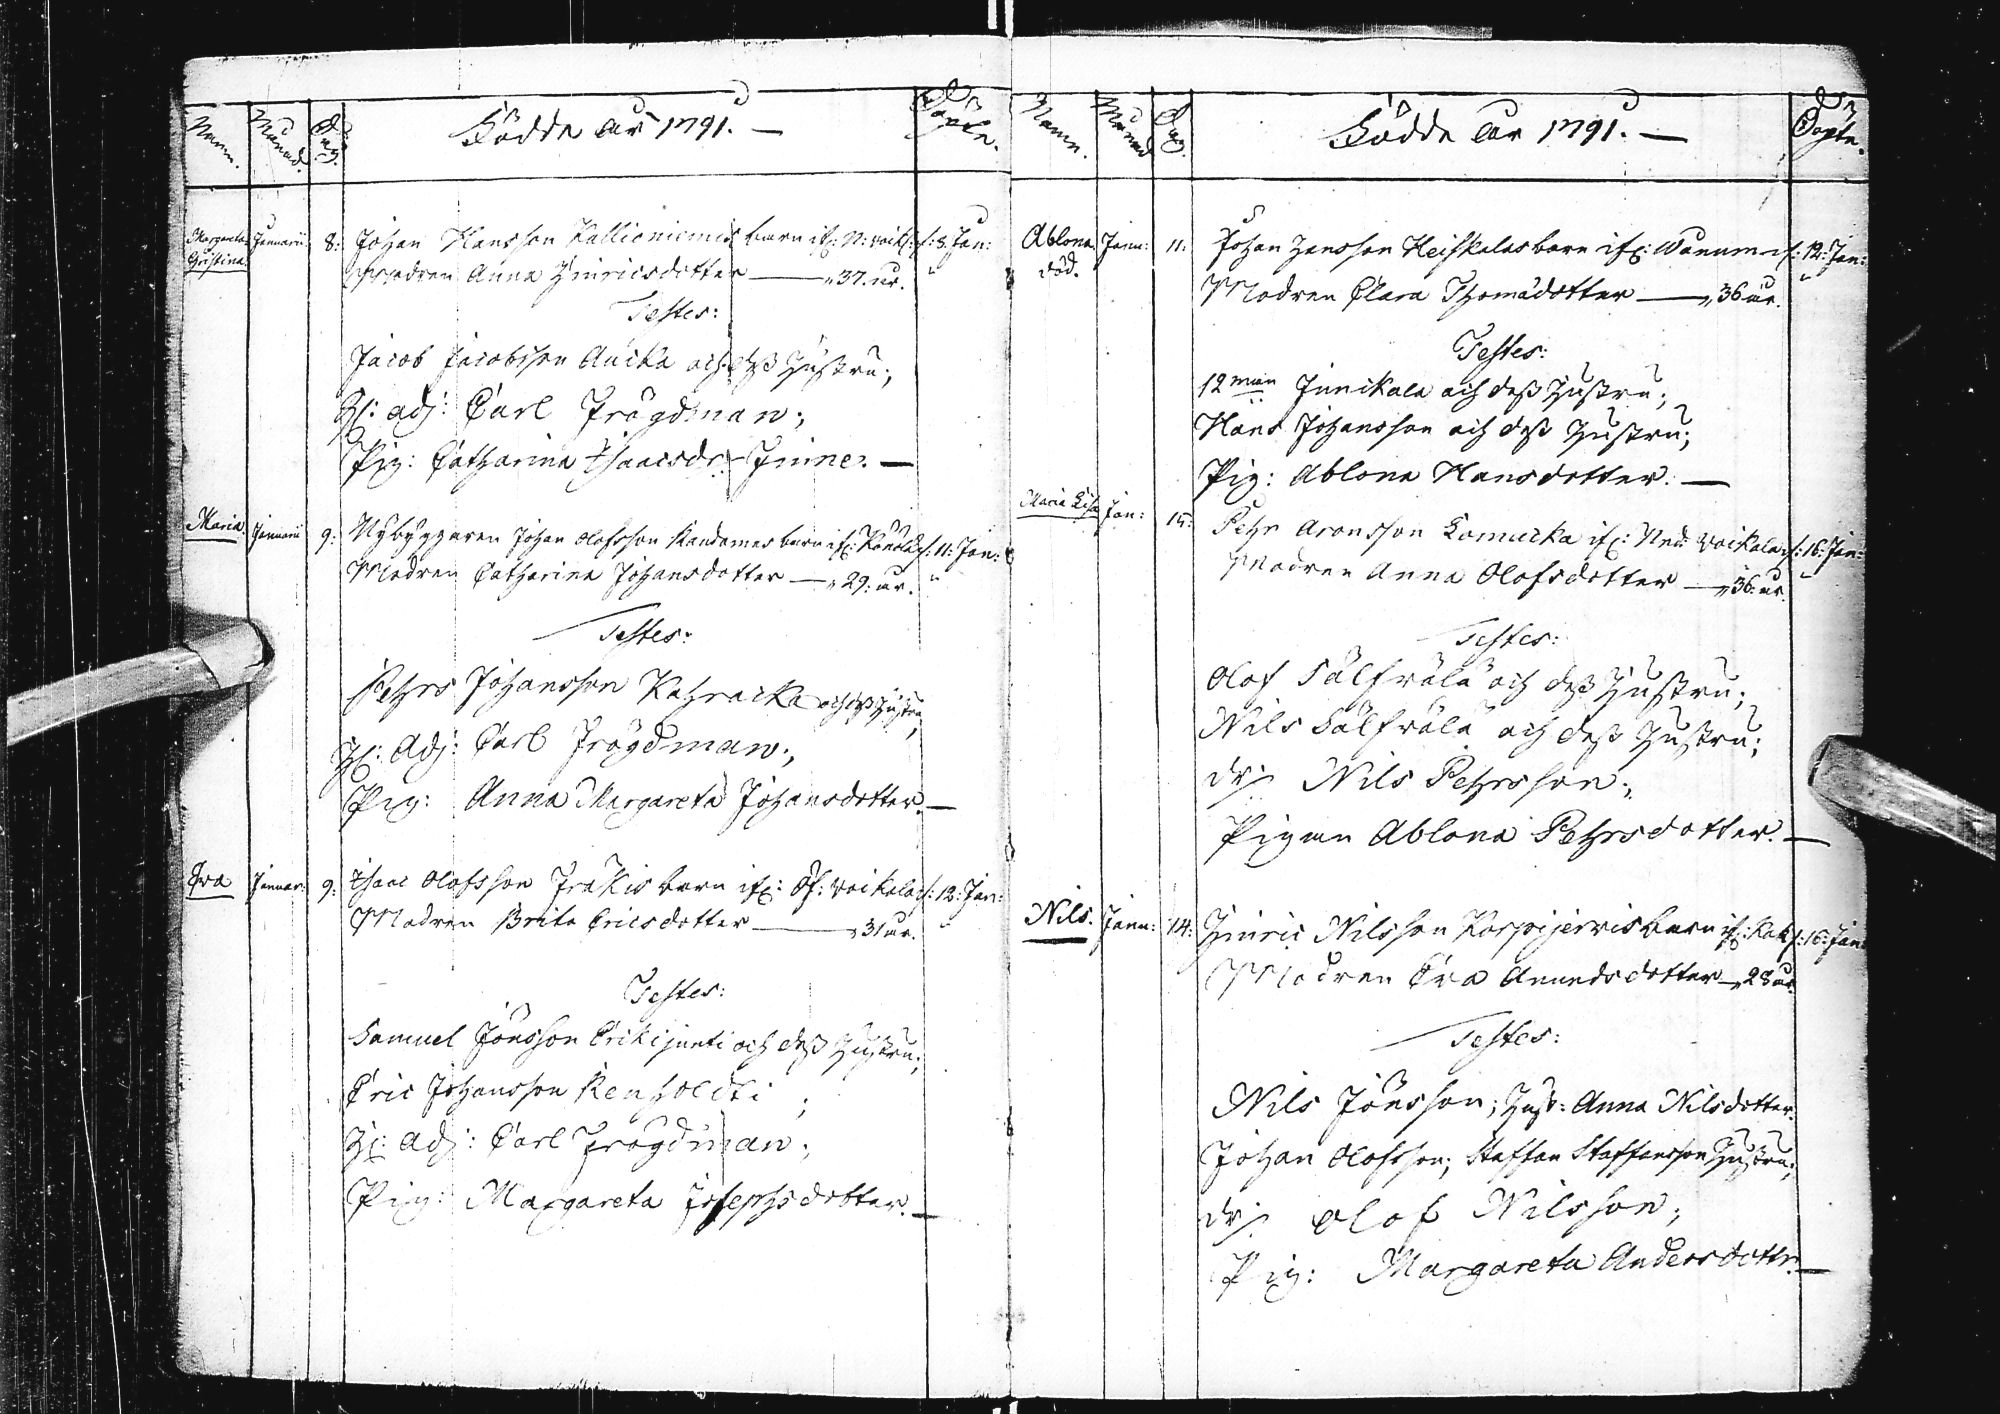 Namn. Månad. Dag. Födde år 1791. — Döpte.
Margareta Januarii 8: Johan Hansson Kallioniemis barn if: N: voik: d: 8. Jan:
Christina Modren Anna Hinricsdotter — 37. år.
Testes:
Jacob Jacobsson Aucka och deß Hustru;
H: adj: Carl Frögdman;
Pig: Catharina Isaacsdr: Juner. —
Maria. Januarii 9: Nybyggaren Johan Olofsson Kandomes barn if: d: 11: Jan:
Modren Catharina Johansdotter — 29: år.
Testes:
Pehrs Johansson Kahraicka och deß Hustru;
H: Adj: Carl Frögdman;
Pig: Anna Margareta Johansdotter. —
Eva Januar: 9: Isaac Olofsson Frakis barn if: Öf: voikala d: 12: Jan:
Modren Brita Ericsdotter — 31 år.
Testes:
Samuel Jönsson Erikijunti och deß Hustru;
Eric Johansson Renholdti;
H: adj: Carl Frögdman;
Pig: Margareta Josephsdotter. —
Namn. Månad Dag. Födde år 1791. — Döpte.
Ablona Janu: 11: Johan Hansson Heiskalas barn if: d: 12: Jan:
död. Modren Clara Thomädotter — 36 år.
Testes:
12 män Junickala och deß Hustru;
Hans Johansson och deß Hustru;
Pig: Ablona Hansdotter. —
Maria Lisa Jan: 15: Pehr Aronsson Lomucka if: Ned: voikala d: 16: Jan:
Modren Anna Olofsdotter — 36: år.
Testes:
Olof och deß Hustru;
Nils och deß Hustru;
dr: Nils Pehrsson;
Pigan Ablona Pehrsdotter. —
Nils. Janu: 14: Hinric Nilsson Korpijervis barn if: d: 16: Jan:
Modren Eva Anundsdotter — 28 år.
Testes:
Nils Jönsson; Hust: Anna Nilsdotter.
Johan Olofsson; Staffan Staffansson Hustru;
dr: Olof Nilsson;
Pig: Margareta Andersdottr. —